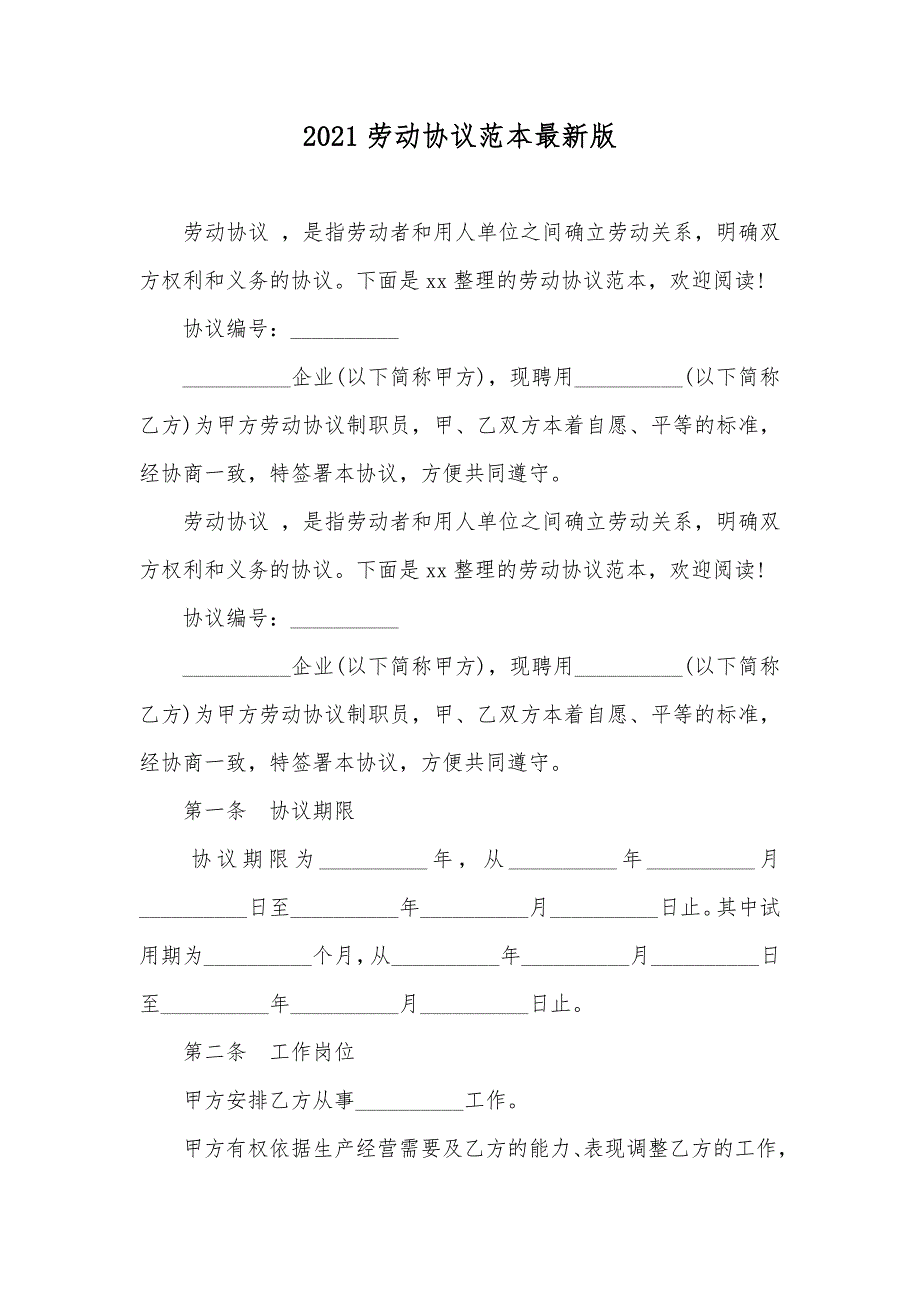 2021劳动协议范本最新版
劳动协议 ，是指劳动者和用人单位之间确立劳动关系，明确双
方权利和义务的协议。下面是 xx 整理的劳动协议范本，欢迎阅读!
协议编号：__________
__________企业(以下简称甲方)，现聘用__________(以下简称
乙方)为甲方劳动协议制职员，甲、乙双方本着自愿、平等的标准，
经协商一致，特签署本协议，方便共同遵守。
劳动协议 ，是指劳动者和用人单位之间确立劳动关系，明确双
方权利和义务的协议。下面是 xx 整理的劳动协议范本，欢迎阅读!
协议编号：__________
__________企业(以下简称甲方)，现聘用__________(以下简称
乙方)为甲方劳动协议制职员，甲、乙双方本着自愿、平等的标准，
经协商一致，特签署本协议，方便共同遵守。
第一条　协议期限
协议期限为__________年，从__________年__________月
__________日至__________年__________月__________日止。其中试
用期为__________个月，从__________年__________月__________日
至__________年__________月__________日止。
第二条　工作岗位
甲方安排乙方从事__________工作。
甲方有权依据生产经营需要及乙方的能力、表现调整乙方的工作，